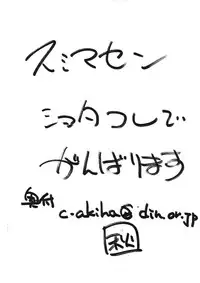 スミマセン
シヨタコレで
がんばります
奥付 c-akiha@din.or.jp
秋